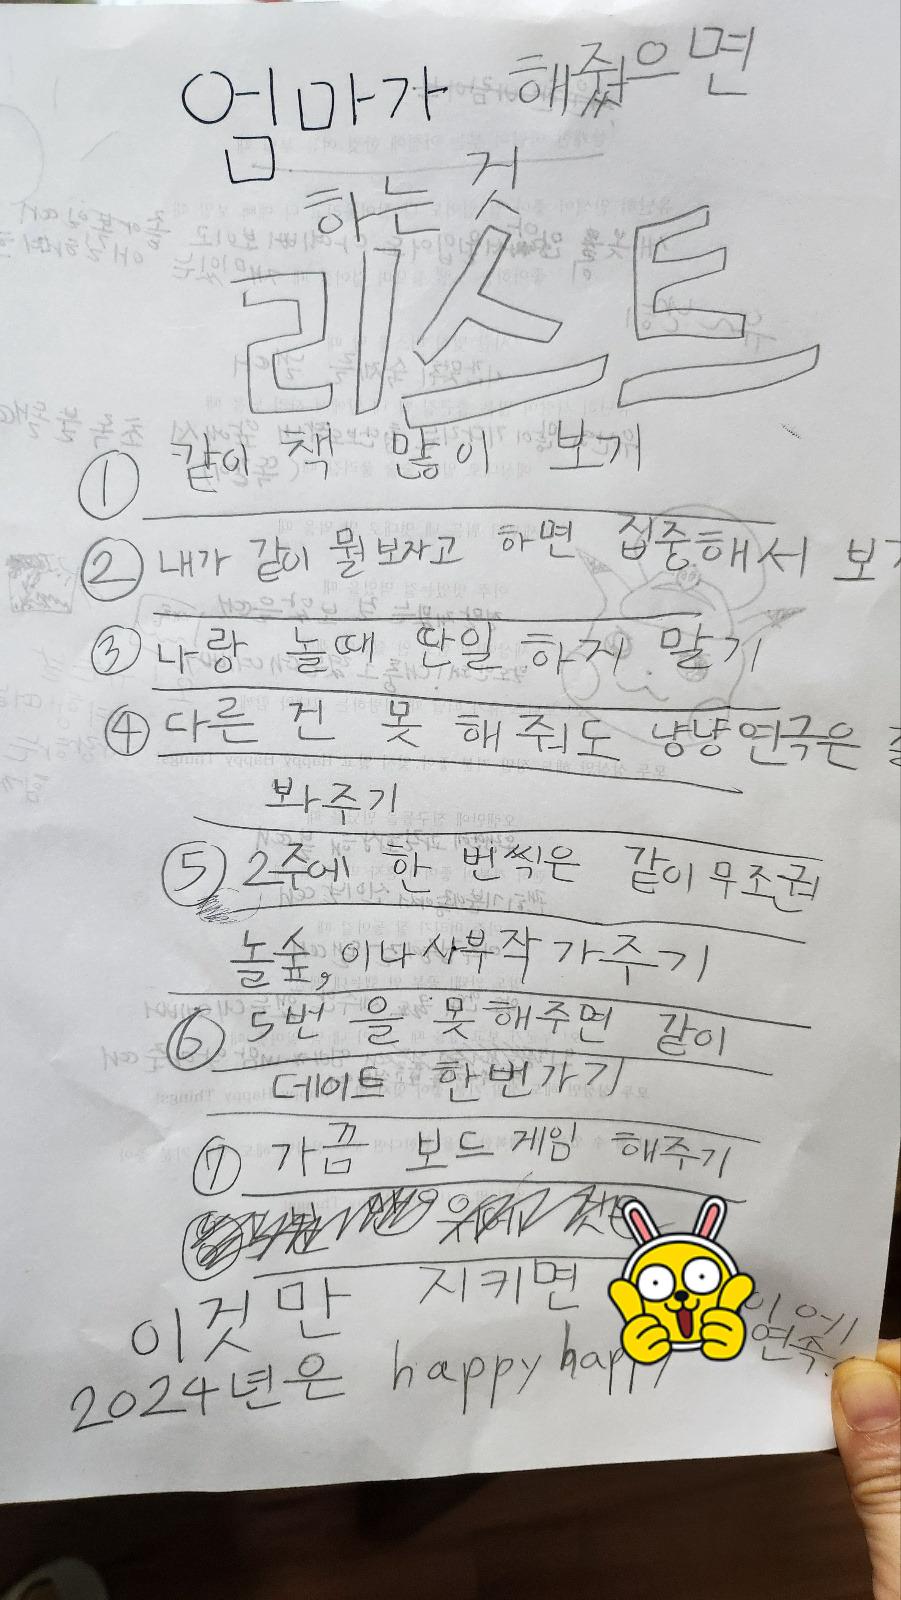 엄마가 해줬으면
하는 것
리스트
① 같이 책 많이 보기
② 내가 같이 뭘 보자고 하면 집중해서 보기
③ 나랑 놀때 딴일 하지 말기
④ 다른 건 못 해줘도 냥냥연극은
봐주기
⑤ 2주에 한 번씩은 같이 무조권
놀숲, 이나 사부작 가주기
⑥ 5번 을 못해주면 같이
데이트 한번가기
⑦ 가끔 보드게임 해주기
이것만 지키면 이에
2024년은 happy happy 연속!